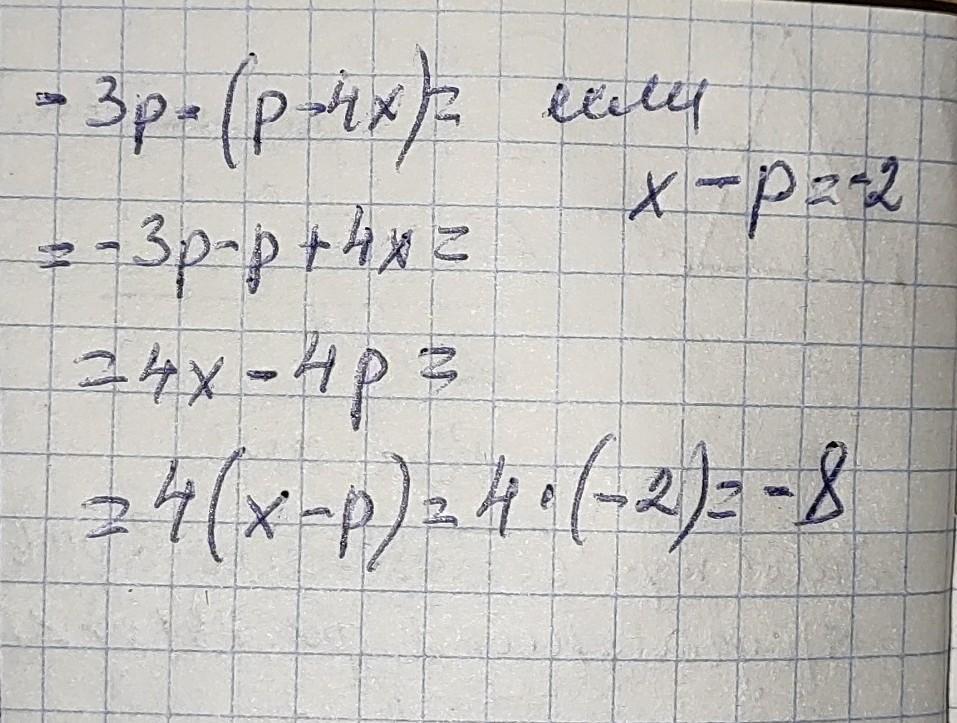 - 3p - (p - 4x) = если
x - p = -2
= - 3p - p + 4x =
= 4x - 4p =
= 4(x - p) = 4 · (-2) = - 8